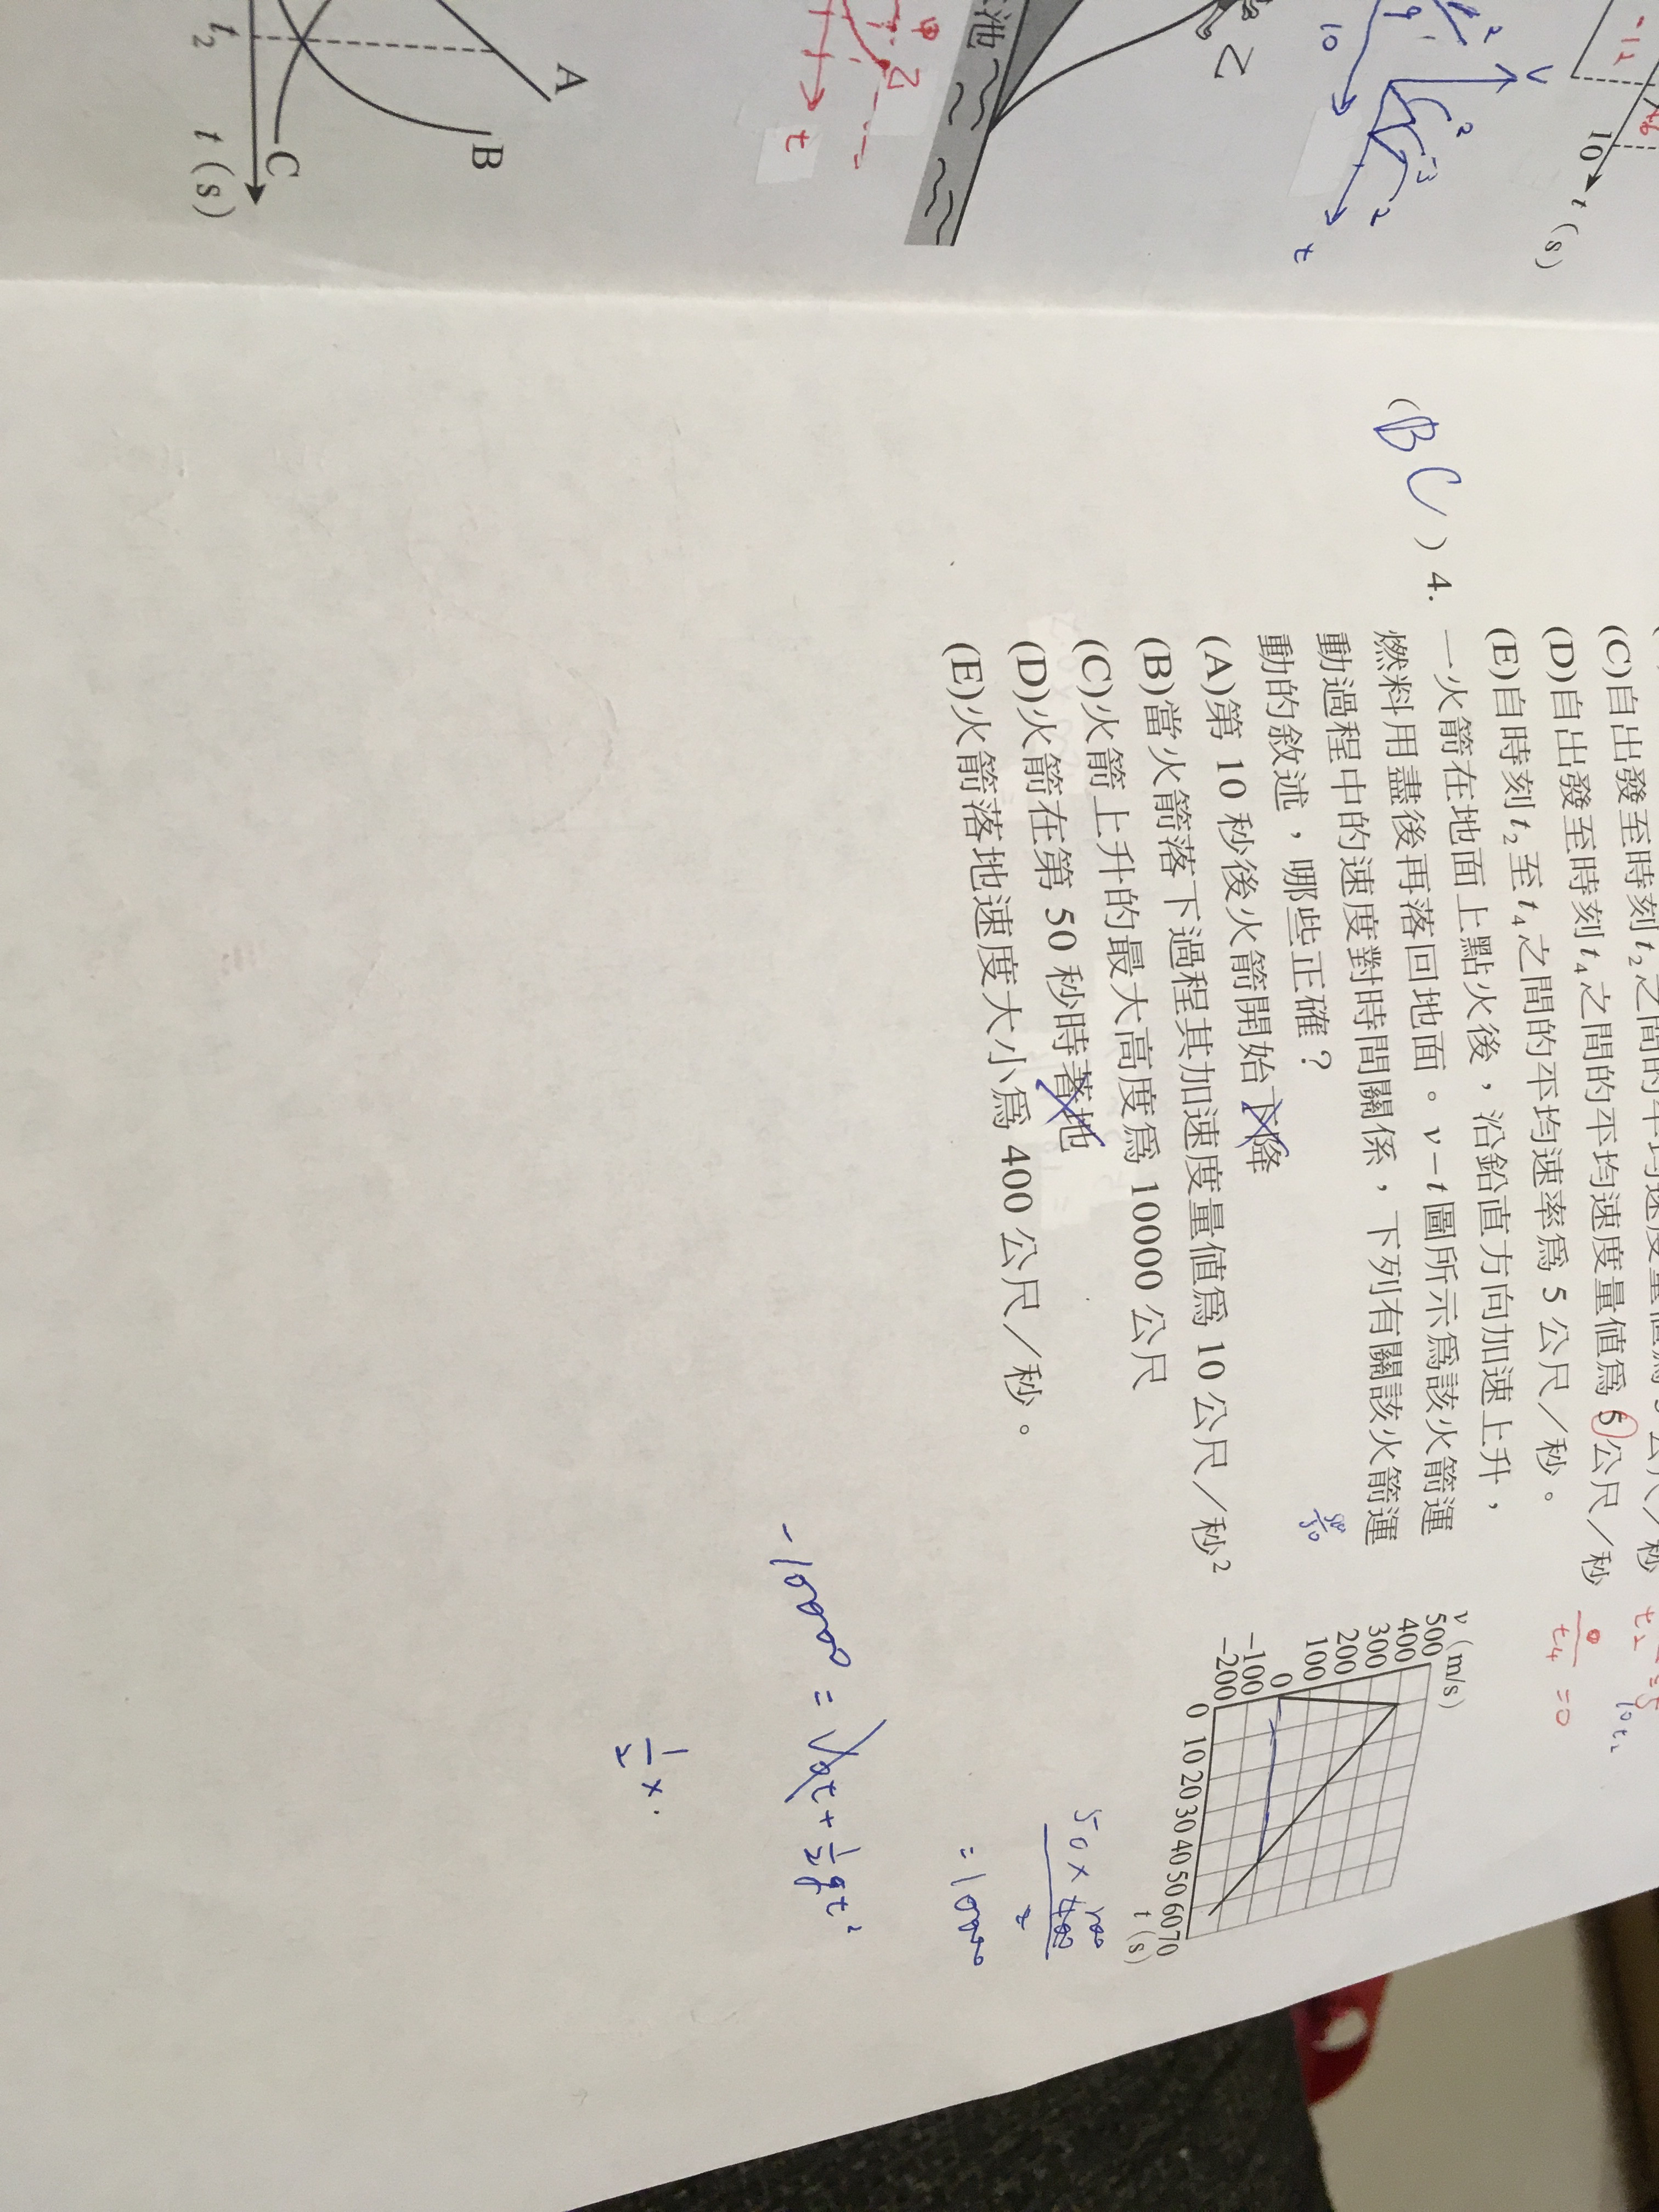 (C)自出發至時刻 t₂ 之間的
(D)自出發至時刻 t₄ 之間的平均速度量值為 5 公尺／秒
(E)自時刻 t₂ 至 t₄ 之間的平均速率為 5 公尺／秒。
t₄ = 0
(BC) 4. 一火箭在地面上點火後，沿鉛直方向加速上升，
燃料用盡後再落回地面。v－t 圖所示為該火箭運
動過程中的速度對時間關係，下列有關該火箭運
動的敘述，哪些正確？
(A)第 10 秒後火箭開始下降
(B)當火箭落下過程其加速度量值為 10 公尺／秒²
(C)火箭上升的最大高度為 10000 公尺
(D)火箭在第 50 秒時著地
(E)火箭落地速度大小為 400 公尺／秒。
v (m/s)
500
400
300
200
100
0
-100
-200
0 10 20 30 40 50 60 70
t (s)
50 × 400
2
= 10000
-10000 = V₀t + 1/2 gt²
1/2 ×
v
10
t
10 t (s)
Z
池
Z
t
A
B
C
t₂
t (s)